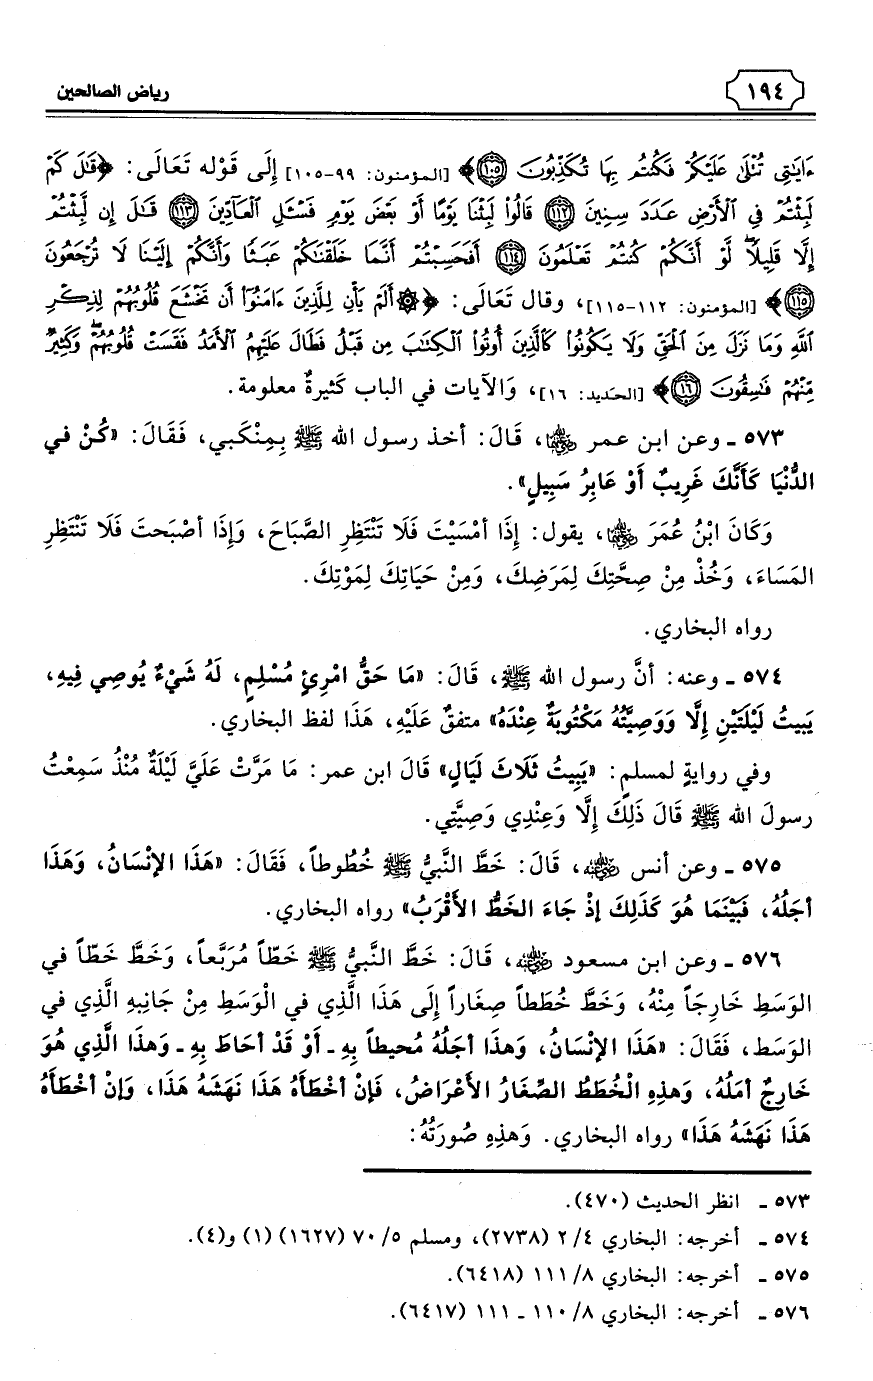 ١٩٤ رياض الصالحين
ءَايَٰتِى تُتْلَىٰ عَلَيْكُمْ فَكُنتُم بِهَا تُكَذِّبُونَ ﴿١٠٥﴾﴾ [المؤمنون: ٩٩-١٠٥] إِلَى قَوْله تَعَالَى: ﴿قَٰلَ كَمْ
لَبِثْتُمْ فِى ٱلْأَرْضِ عَدَدَ سِنِينَ ﴿١١٢﴾ قَالُوا۟ لَبِثْنَا يَوْمًا أَوْ بَعْضَ يَوْمٍ فَسْـَٔلِ ٱلْعَآدِّينَ ﴿١١٣﴾ قَٰلَ إِن لَّبِثْتُمْ
إِلَّا قَلِيلًا ۖ لَّوْ أَنَّكُمْ كُنتُمْ تَعْلَمُونَ ﴿١١٤﴾ أَفَحَسِبْتُمْ أَنَّمَا خَلَقْنَٰكُمْ عَبَثًا وَأَنَّكُمْ إِلَيْنَا لَا تُرْجَعُونَ
﴿١١٥﴾﴾ [المؤمنون: ١١٢-١١٥]، وقال تَعَالَى: ﴿۞ أَلَمْ يَأْنِ لِلَّذِينَ ءَامَنُوٓا۟ أَن تَخْشَعَ قُلُوبُهُمْ لِذِكْرِ
ٱللَّهِ وَمَا نَزَلَ مِنَ ٱلْحَقِّ وَلَا يَكُونُوا۟ كَٱلَّذِينَ أُوتُوا۟ ٱلْكِتَٰبَ مِن قَبْلُ فَطَالَ عَلَيْهِمُ ٱلْأَمَدُ فَقَسَتْ قُلُوبُهُمْ ۖ وَكَثِيرٌ
مِّنْهُمْ فَٰسِقُونَ ﴿١٦﴾﴾ [الحديد: ١٦]، وَالآيات في الباب كَثيرةٌ معلومة.
٥٧٣ ـ وعن ابن عمر رضي الله عنهما، قَالَ: أخذ رسول الله ﷺ بِمِنْكَبي، فَقَالَ: «كُنْ في
الدُّنْيَا كَأَنَّكَ غَرِيبٌ أَوْ عَابِرُ سَبِيلٍ».
وَكَانَ ابْنُ عُمَرَ رضي الله عنهما، يقول: إِذَا أمْسَيْتَ فَلَا تَنْتَظِرِ الصَّبَاحَ، وَإِذَا أصْبَحتَ فَلَا تَنْتَظِرِ
المَسَاءَ، وَخُذْ مِنْ صِحَّتِكَ لِمَرَضِكَ، وَمِنْ حَيَاتِكَ لِمَوْتِكَ.
رواه البخاري.
٥٧٤ ـ وعنه: أنَّ رسول الله ﷺ، قَالَ: «مَا حَقُّ امْرِئٍ مُسْلِمٍ، لَهُ شَيْءٌ يُوصِي فِيهِ،
يَبيتُ لَيْلَتَيْنِ إِلَّا وَوَصِيَّتُهُ مَكْتُوبَةٌ عِنْدَهُ» متفقٌ عَلَيْهِ، هَذَا لفظ البخاري.
وفي روايةٍ لمسلمٍ: «يَبِيتُ ثَلَاثَ لَيَالٍ» قَالَ ابن عمر: مَا مَرَّتْ عَلَيَّ لَيْلَةٌ مُنْذُ سَمِعْتُ
رسولَ الله ﷺ قَالَ ذَلِكَ إِلَّا وَعِنْدِي وَصِيَّتِي.
٥٧٥ ـ وعن أنس رضي الله عنه، قَالَ: خَطَّ النَّبيُّ ﷺ خُطُوطاً، فَقَالَ: «هَذَا الإنْسَانُ، وَهَذَا
أجَلُهُ، فَبَيْنَمَا هُوَ كَذَلِكَ إذْ جَاءَ الخَطُّ الأَقْرَبُ» رواه البخاري.
٥٧٦ ـ وعن ابن مسعود رضي الله عنه، قَالَ: خَطَّ النَّبيُّ ﷺ خَطّاً مُرَبَّعاً، وَخَطَّ خَطّاً في
الوَسَطِ خَارِجَاً مِنْهُ، وَخَطَّ خُطَطاً صِغَاراً إِلَى هَذَا الَّذِي في الْوَسَطِ مِنْ جَانِبهِ الَّذِي في
الوَسَط، فَقَالَ: «هَذَا الإنْسَانُ، وَهذَا أجَلُهُ مُحيطاً بِهِ ـ أَوْ قَدْ أحَاطَ بِهِ ـ وَهذَا الَّذِي هُوَ
خَارِجٌ أمَلُهُ، وَهذِهِ الْخُطَطُ الصِّغَارُ الأَعْرَاضُ، فَإنْ أخْطَأَهُ هَذَا نَهَشَهُ هَذَا، وَإنْ أخْطَأَهُ
هَذَا نَهَشَهُ هَذَا» رواه البخاري. وَهذِهِ صُورَتُهُ:
٥٧٣ ـ انظر الحديث (٤٧٠).
٥٧٤ ـ أخرجه: البخاري ٤/ ٢ (٢٧٣٨)، ومسلم ٥/ ٧٠ (١٦٢٧) (١) و(٤).
٥٧٥ ـ أخرجه: البخاري ٨/ ١١١ (٦٤١٨).
٥٧٦ ـ أخرجه: البخاري ٨/ ١١٠ ـ ١١١ (٦٤١٧).